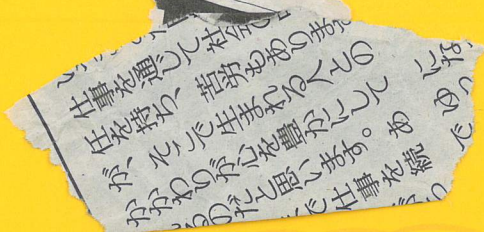 仕事を通じて社会の
任を持ち、苦労もありま
が、そこで生まれる人との
かかわりが心を豊かにして
るのだと思います。あ
で仕事を続